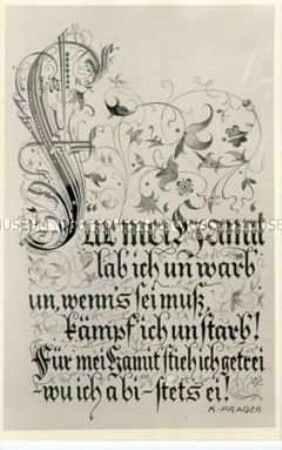 Für mei Hamit
lab ich un warb
un, wenns sei muß,
kämpf ich un starb!
Für mei Hamit stieh ich getrei
-wu ich a bi-stets ei!
K. PRAGER